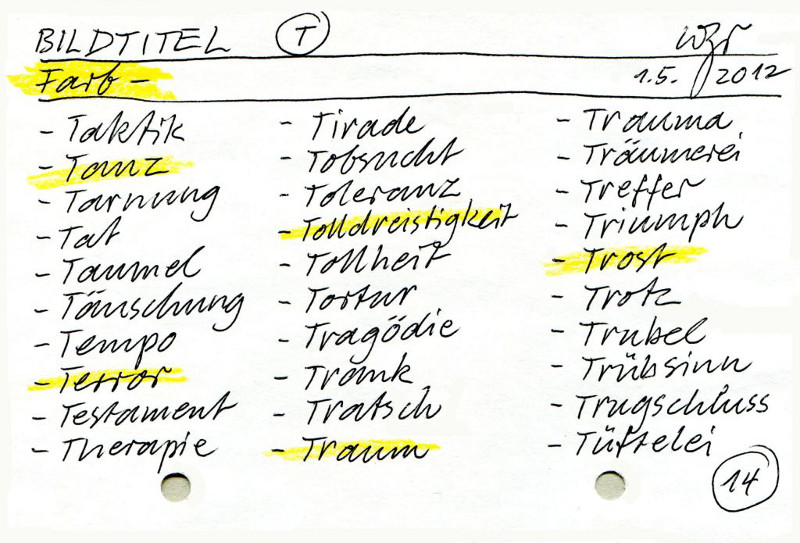 BILDTITEL T wzr
Farb - 1.5. 2012
- Taktik
- Tanz
- Tarnung
- Tat
- Taumel
- Täuschung
- Tempo
- Terror
- Testament
- Therapie
- Tirade
- Tobsucht
- Toleranz
- Tolldreistigkeit
- Tollheit
- Tortur
- Tragödie
- Trank
- Tratsch
- Traum
- Trauma
- Träumerei
- Treffer
- Triumph
- Trost
- Trotz
- Trubel
- Trübsinn
- Trugschluss
- Tüftelei
14